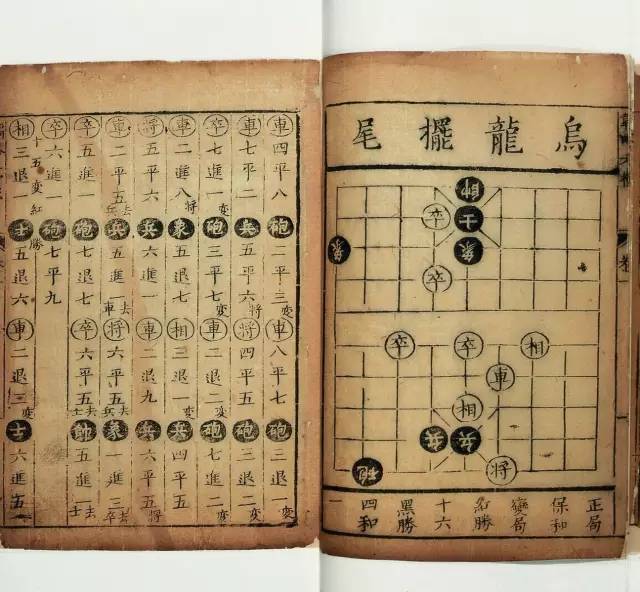 烏龍擺尾
帥
卒士
象象
卒
卒卒相
車
相
兵兵
砲將
正局
保和
變局
紅勝
十六
黑勝
四和
一
車四平八砲二平三變車八平七砲三退一變
車七平二兵五平六將將四平五砲三退二變
卒七進一變砲三平七變車二退二砲七進二變
車二進八將象五退七相三退一兵四平五
將五平六兵五進一車二退九兵六平五將
車二平五去兵兵五進一去車將六平五去兵象一進三去卒
卒五進一砲七退七卒六平五去士帥五進一去士
卒六進一砲七平九
十五變紅勝
相三退一士五退六車二退三變士六進五